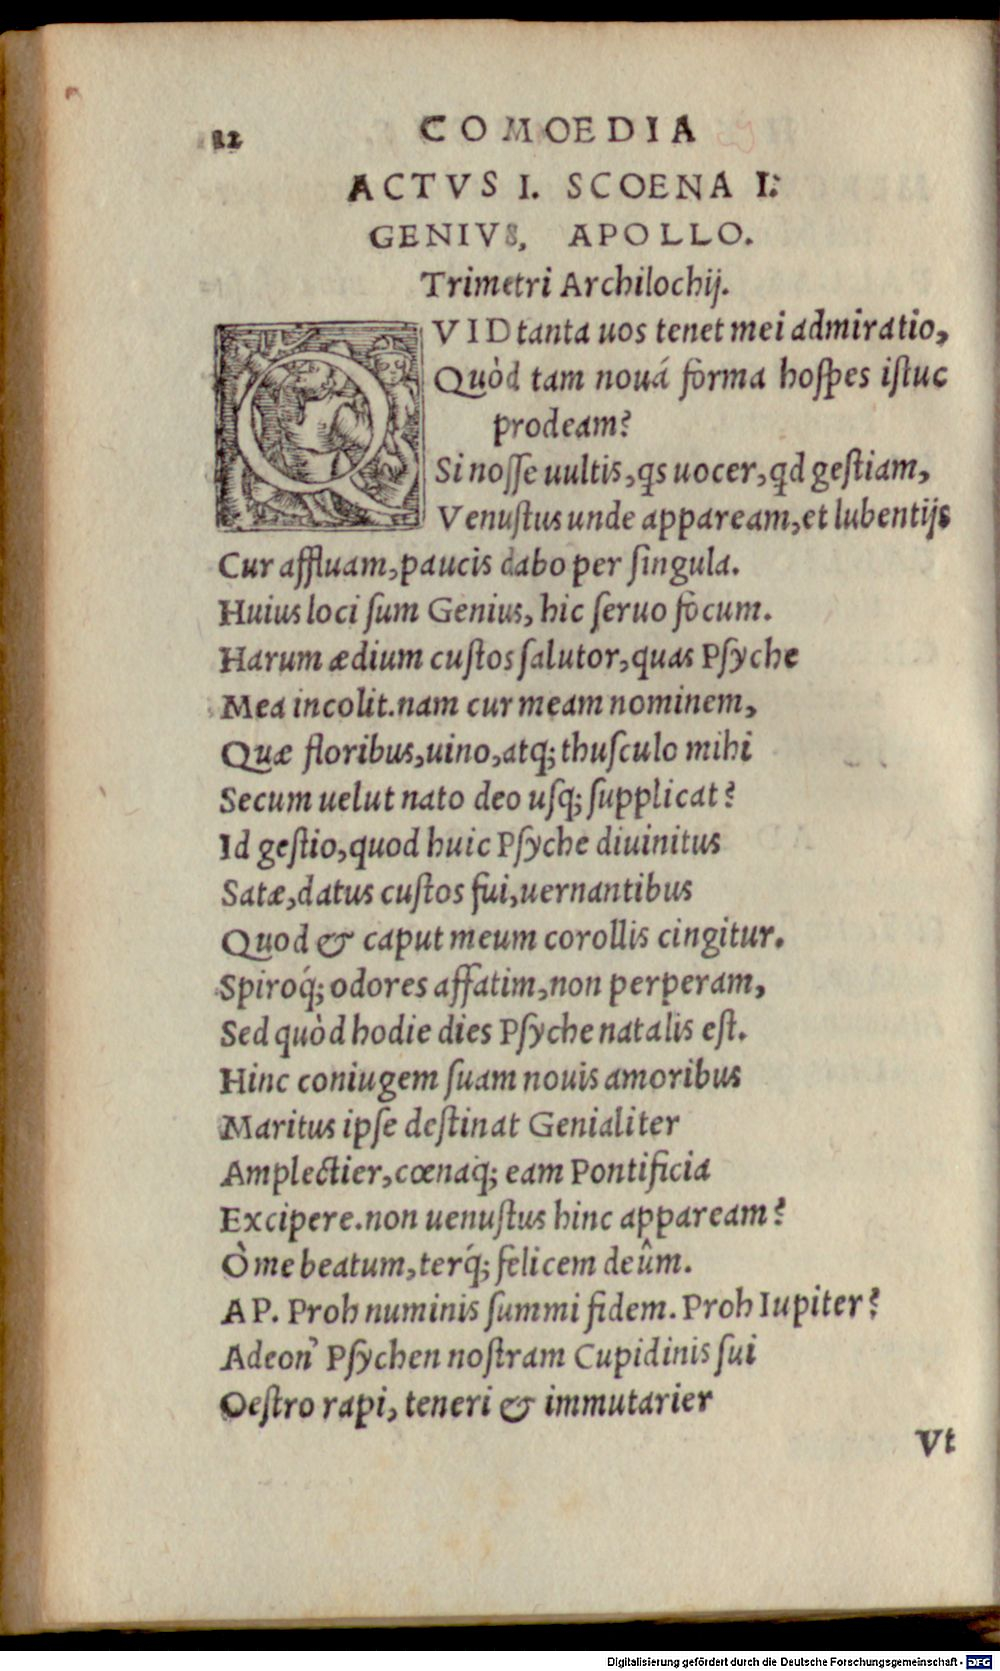 22
COMOEDIA
ACTVS I. SCOENA I.
GENIVS, APOLLO.
Trimetri Archilochij.
QVID tanta uos tenet mei admiratio,
Quòd tam nouá forma hoſpes iſtuc
prodeam?
Si noſſe uultis, qs uocer, qd geſtiam,
Venuſtus unde appaream, et lubentijs
Cur affluam, paucis dabo per ſingula.
Huius loci ſum Genius, hic ſeruo focum.
Harum ædium cuſtos ſalutor, quas Pſyche
Mea incolit. nam cur meam nominem,
Quæ floribus, uino, atq; thuſculo mihi
Secum uelut nato deo uſq; ſupplicat?
Id geſtio, quod huic Pſyche diuinitus
Satæ, datus cuſtos fui, uernantibus
Quod & caput meum corollis cingitur.
Spiroq́; odores affatim, non perperam,
Sed quòd hodie dies Pſyche natalis eſt.
Hinc coniugem ſuam nouis amoribus
Maritus ipſe deſtinat Genialiter
Amplectier, cœnaq́; eam Pontificia
Excipere. non uenuſtus hinc appaream?
Ò me beatum, terq́; felicem deûm.
AP. Proh numinis ſummi fidem. Proh Iupiter?
Adeon' Pſychen noſtram Cupidinis ſui
Oeſtro rapi, teneri & immutarier
Vt
Digitalisierung gefördert durch die Deutsche Forschungsgemeinschaft - DFG